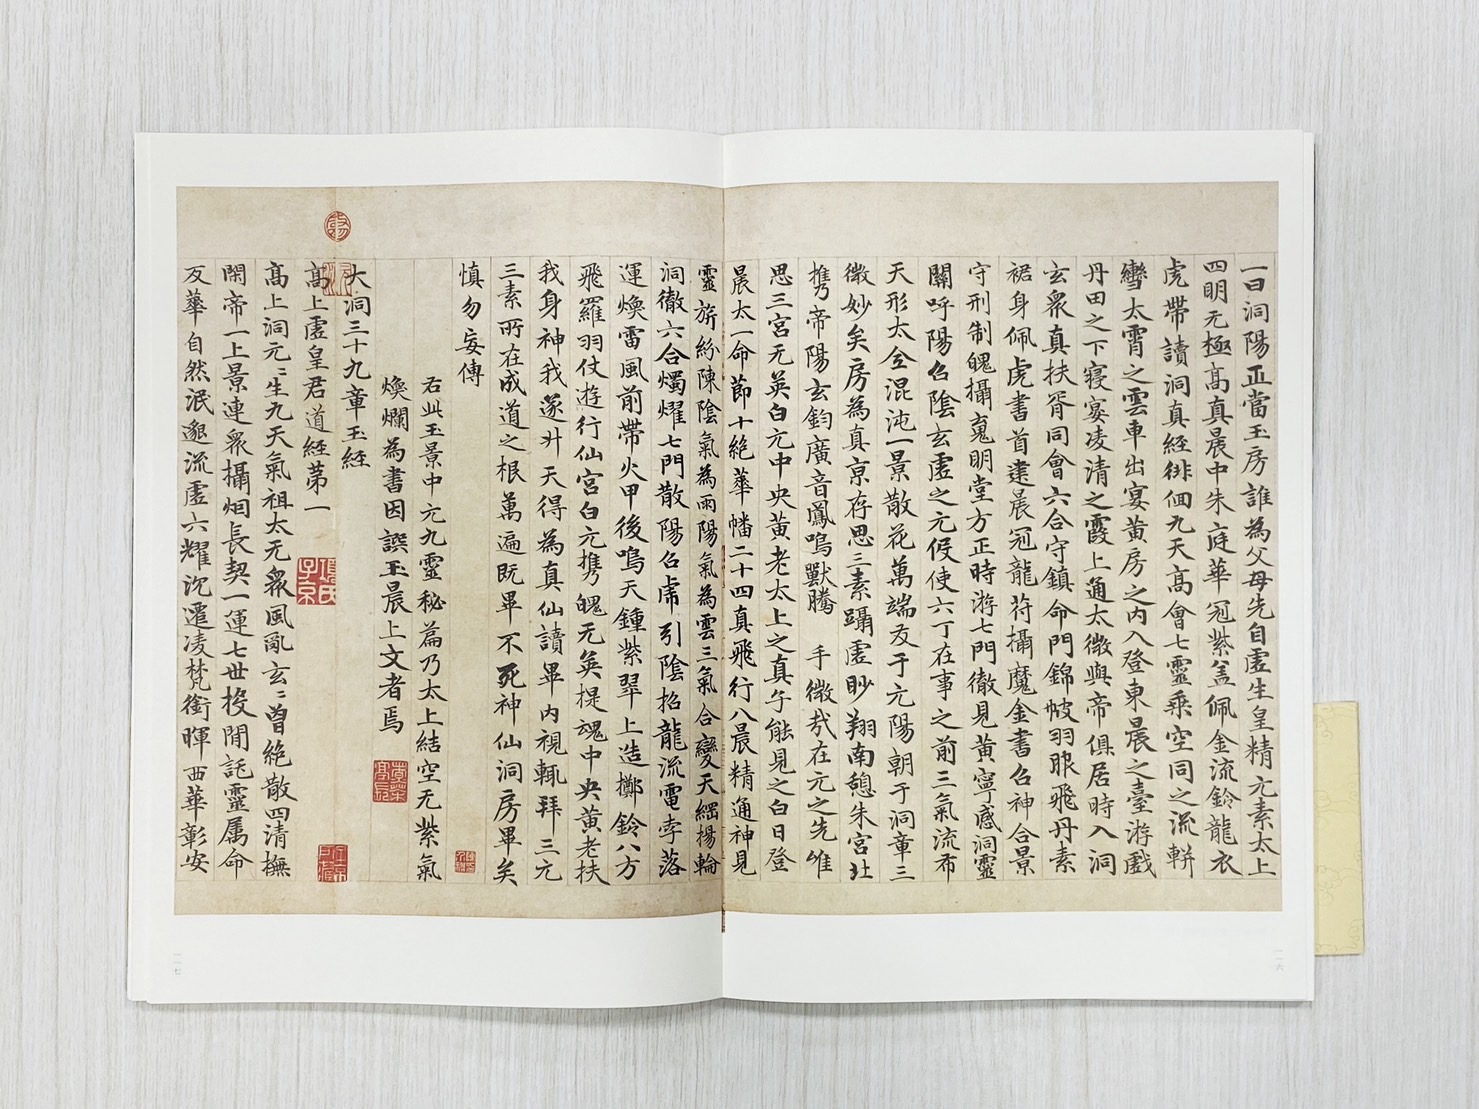 一曰洞陽正當玉房誰為父母先自虛生皇精元素太上
四明无極高真晨中朱庭華冠紫盖佩金流鈴龍衣
虎帶讀洞真經徘佪九天高會七靈乗空同之流軿
轡太霄之雲車出宴黄房之内入登東晨之臺游戲
丹田之下寝宴凌清之霞上通太微與帝俱居時入洞
玄衆真扶胥同會六合守鎮命門錦帔羽服飛丹素
裙身佩虎書首建晨冠龍符攝魔金書召神合景
守刑制魄攝䰟明堂方正時游七門徹見黄寧感洞靈
關呼陽召陰玄虛之元侯使六丁在事之前三氣流布
天形太仝混沌一景散花萬端友于元陽朝于洞章三
微妙矣房為真京存思三素躡虛眇翔南憩朱宫北
携帝陽玄鈞廣音鳳鳴獸騰 手微㢤在元之先唯
思三宫无英白元中央黄老太上之真乍能見之白日登
晨太一命節十絶華幡二十四真飛行八晨精通神見
靈旂紛陳陰氣為雨陽氣為雲三氣合變天綱揚輪
洞徹六合燭耀七門散陽召虎引陰招龍流電孛落
運煥雷風前帶火甲後鳴天鍾紫翠上造擲鈴八方
飛羅羽仗遊行仙宫白元携魄无英提魂中央黄老扶
我身神我遂升天得為真仙讀畢内視輒拜三元
三素所在成道之根萬遍既畢不死神仙洞房畢矣
慎勿妄傳
右此玉景中元九靈秘篇乃太上結空无紫氣
煥爛為書因譔玉晨上文者焉
大洞三十九章玉經
高上虛皇君道經第一
高上洞元〻生九天氣祖太无衆風亂玄〻曽絶散四清撫
閑帝一上景連衆攝烟長契一運七世投閒託靈属命
反華自然泯邈流虛六耀沉遷凌梵銜暉西華彰安
項氏子京
一一六
一一七